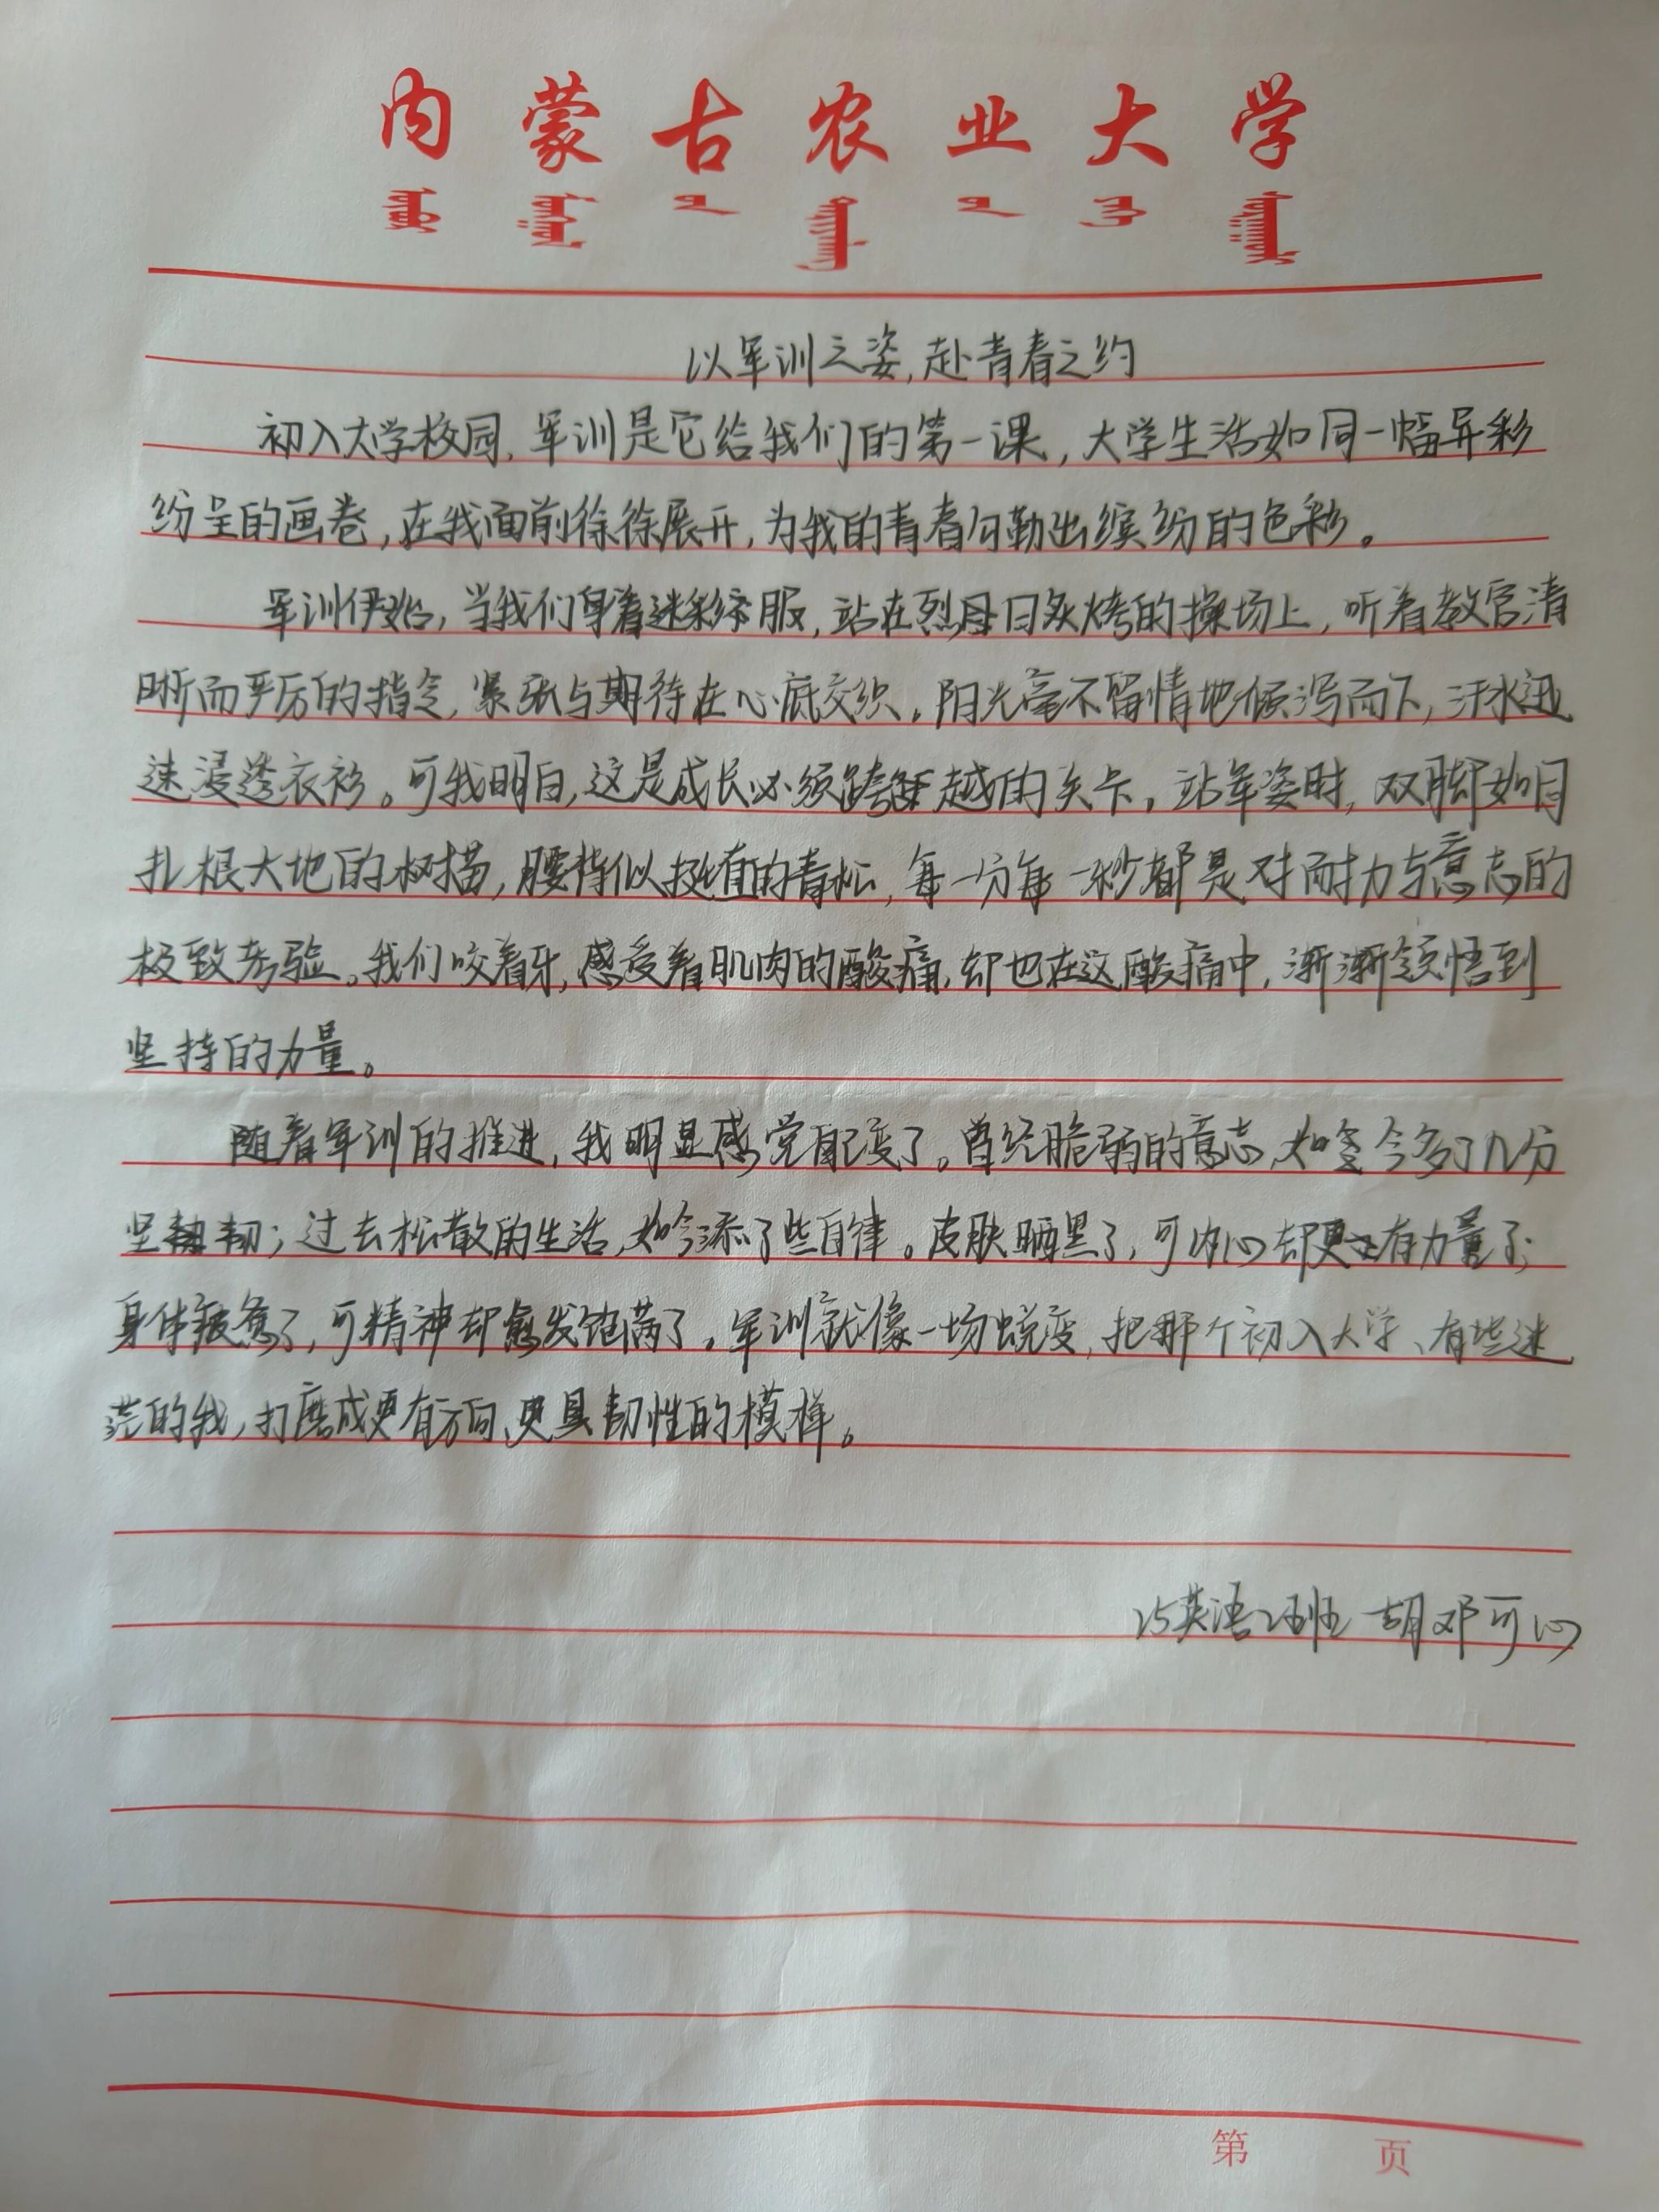 内蒙古农业大学
以军训之姿,赴青春之约
初入大学校园,军训是它给我们的第一课,大学生活如同一幅异彩
纷呈的画卷,在我面前徐徐展开,为我的青春勾勒出缤纷的色彩。
军训伊始,当我们身着迷彩服,站在烈日炙烤的操场上,听着教官清
晰而严厉的指令,紧张与期待在心底交织。阳光毫不留情地倾泻而下,汗水迅
速浸透衣衫。可我明白,这是成长必须跨越的关卡。站军姿时,双脚如同
扎根大地的树描,腰脊似挺直的青松,每一分每一秒都是对耐力与意志的
极致考验。我们咬着牙,感受着肌肉的酸痛,却也在这酸痛中,渐渐领悟到
坚持的力量。
随着军训的推进,我明显感觉自己变了。曾经脆弱的意志,如今多了几分
坚韧;过去松散的生活,如今添了些自律。皮肤晒黑了,可内心却更有力量了;
身体疲惫了,可精神却愈发饱满了。军训就像一场蜕变,把那个初入大学、有些迷
茫的我,打磨成更有方向、更具韧性的模样。
25英语2班 胡邓可心
第 页